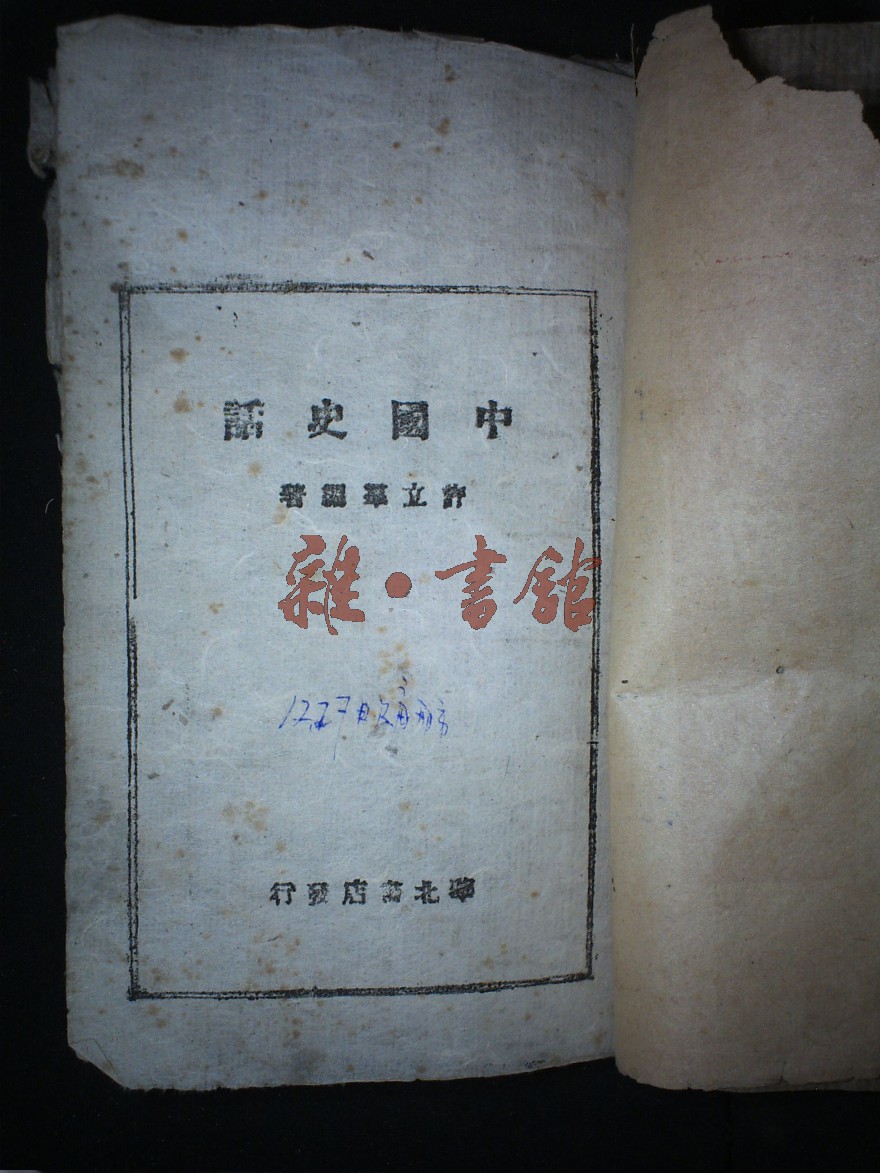 中國史話
許立羣編著
雜·書館
12.27日
華北書店發行